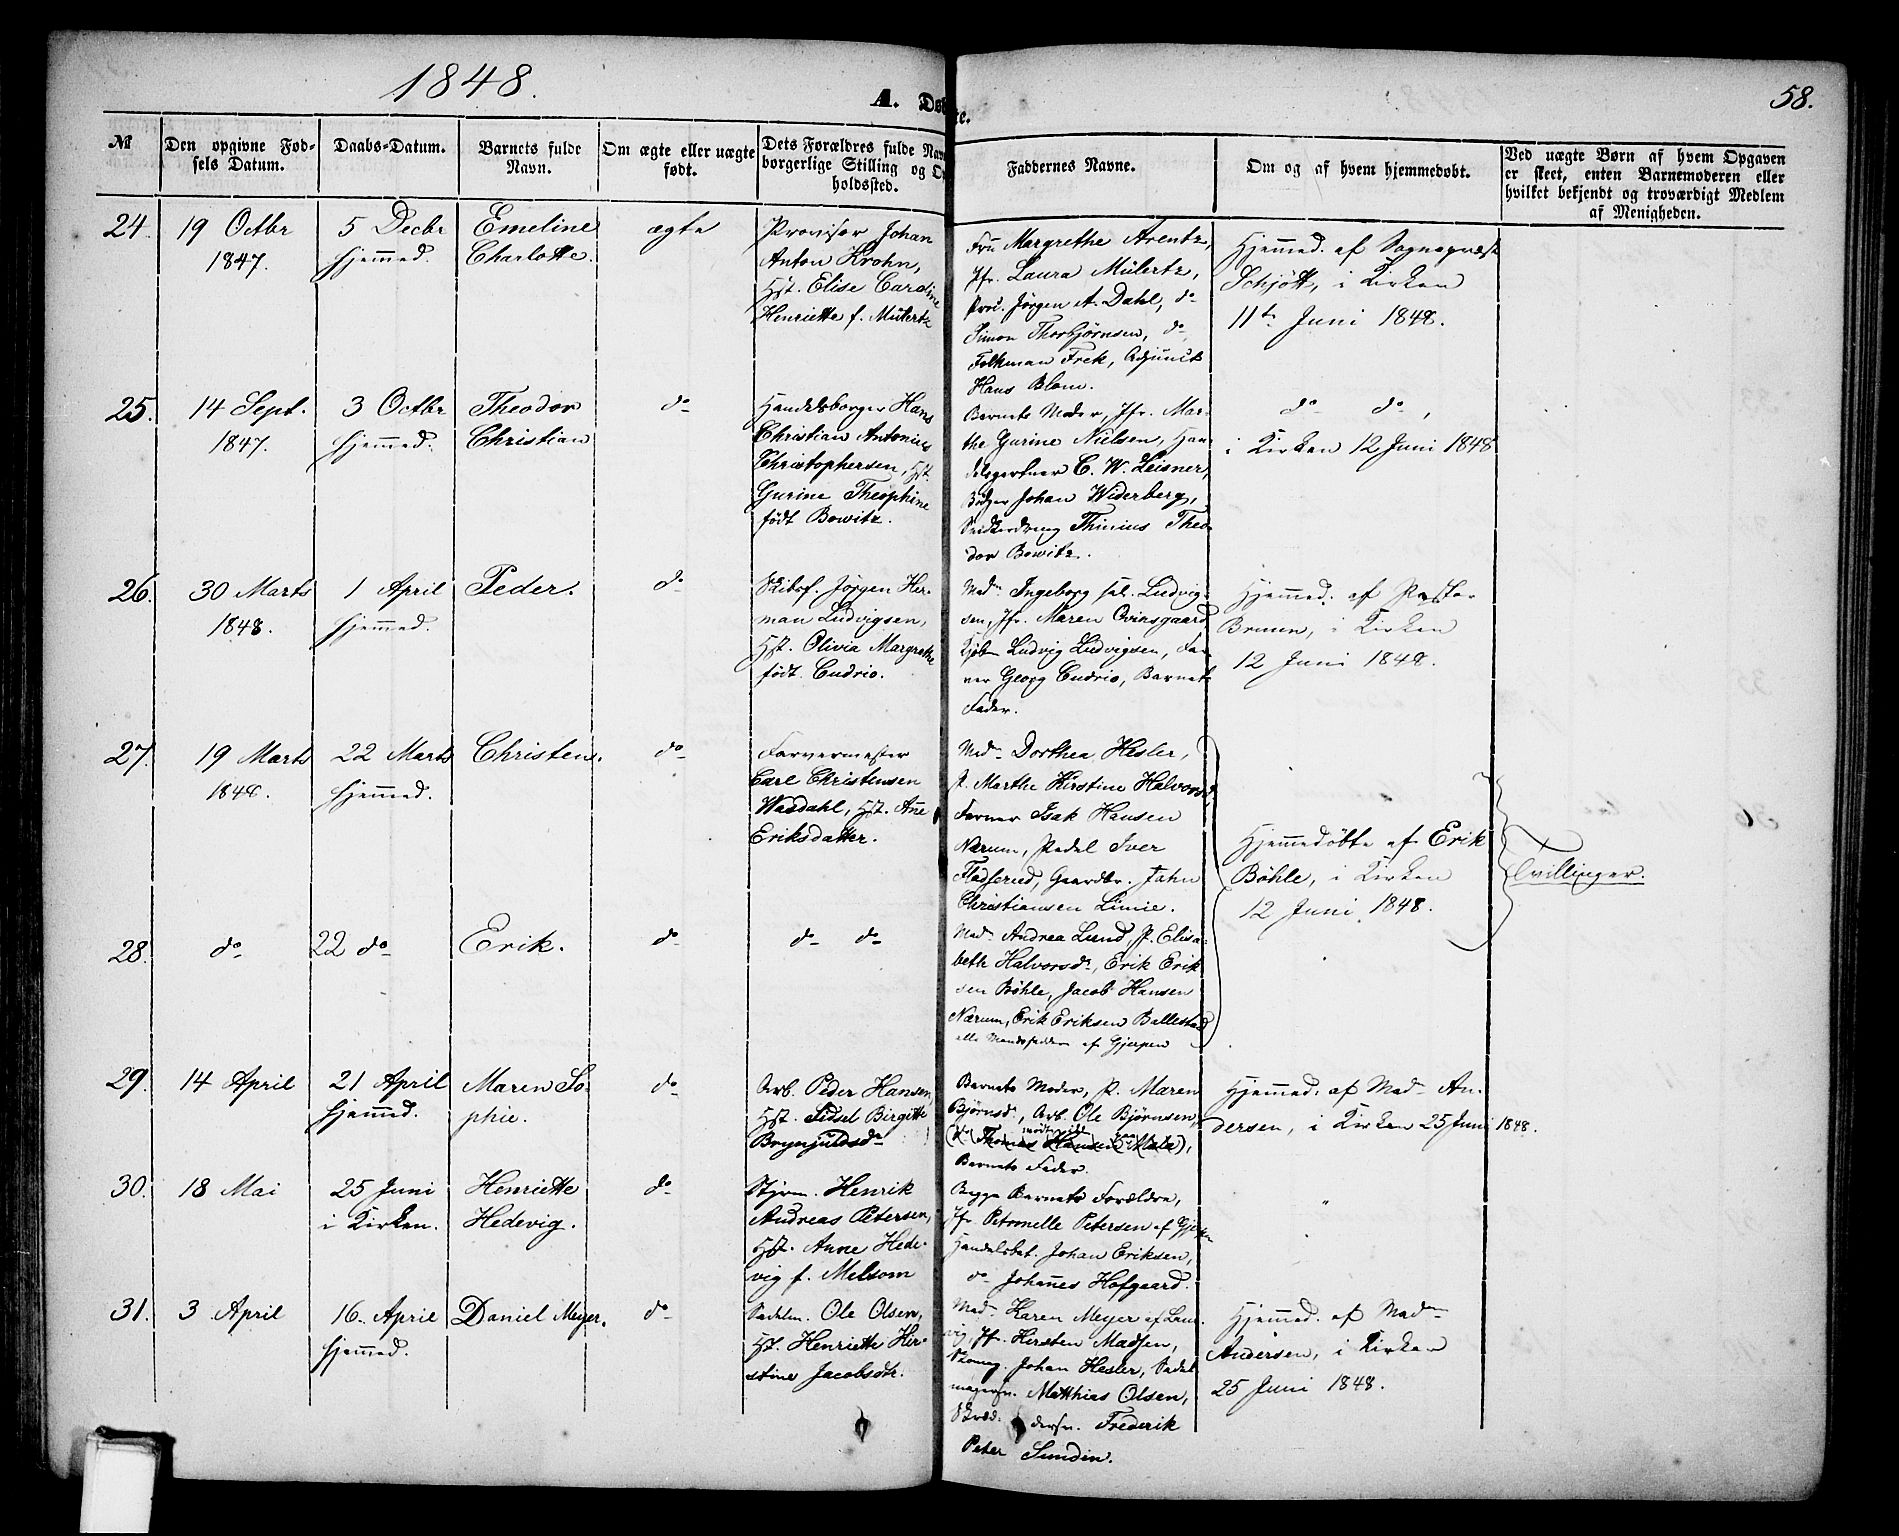 1848.
58.
A. Dø
te.
№
Den opgivne Fød-
sels Datum.
Daabs-Datum.
Barnets fulde
Navn.
Om ægte eller uægte
født.
Dets Forældres fulde Nav
borgerlige Stilling og O
holdssted.
Faddernes Navne.
Om og af hvem hjemmedøbt.
Ved uægte Børn af hvem Opgaven
er skeet, enten Barnemoderen eller
hvilket bekjendt og troværdigt Medlem
af Menigheden.
24.
19 Octbr
1847.
5 Decbr
hjemmed.
Emeline
Charlotte.
ægte
Provisor Johan
Anton Krohn,
Hst. Elise Cardine
Henriette f. Mülertz
Fru Margrethe Arentz,
Jfr. Laura Mülertz,
Prov. Jørgen A. Dahl, do
Simon Thorbjørnsen, do
Folkman Frek, Adjunct
Hans Blom.
Hjemmed. af Sognepræst
Schjøtt, i Kirken
11te Juni 1848.
25.
14 Sept.
1847.
3 Octbr
hjemmed.
Theodor
Christian
do
Handelsborger Hans
Christian Antonius
Christophersen, Hst.
Gurine Theophine
født Bowitz.
Barnets Moder, Jfr. Mar-
the Gurine Nielsen, Han-
delsgartner C. W. Leisner,
Johan Widerberg,
Thinius Theo-
dor Bowitz.
do do,
i Kirken 12 Juni 1848
26.
30 Marts
1848.
1 April
hjemmed.
Peder.
do
Skibsf. Jørgen Her-
man Ludvigsen,
Hst. Olivia Margrethe
født Cudrio.
Mad. Ingeborg sal. Ludvig-
sen, Jfr. Maren Ovinsgaard
Kjøbm Ludvig Ludvigsen, Far-
ver Georg Cudrio, Barnets
Fader.
Hjemmed. af Pastor
Bruun, i Kirken
12 Juni 1848.
27.
19 Marts
1848.
22 Marts
hjemmed.
Christen.
do
Farvermester
Carl Christensen
Wasdahl, Hst. Ane
Eriksdatter.
Mad. Dorthea Hesler,
P. Marthe Kirstine Halvorsd.
Farver Isak Hansen
Nærum, Pedel Iver
Flodserud, Gaardbr. John
Christiansen Limie.
Hjemmedøbte af Erik
Bøhle, i Kirken
12 Juni 1848.
Tvillinger.
28.
do
22 do
Erik.
do
do do
Mad. Andrea Lund, P. Elisa-
beth Halvorsd., Erik Erik
sen Bøhle, Jacob Hansen
Nærum, Erik Eriksen Ballestad
alle Mandsfaddere af Gjerpen
29.
14 April
21 April
hjemmed.
Maren So-
phie.
do
Arb. Peder Hansen,
Hst. Sidsel Birgitte
Brynjuldsdr
Barnets Moder, P. Maren
Bjørnsd., Arb. Ole Bjørnsen,
(do Thomas Hansen Mæla),
Barnets Fader.
Hjemmed. af Mad. An-
dersen, i Kirken 25 Juni 1848.
30.
18 Mai
25 Juni
i Kirken.
Henriette
Hedevig.
do
Styrm. Henrik
Andreas Petersen,
Hst. Anne Hede-
vig f. Melsom
Begge Barnets Forældre,
Jfr. Petronelle Petersen af Gjerpen
Handelsbet. Johan Eriksen,
do Johannes Hofgaard.
"
31.
3 April
16 April
hjemmed.
Daniel Meyer.
do
Sadelm. Ole Olsen,
Hst. Henriette Kir-
stine Jacobsdtr.
Mad. Karen Meyer af Laur-
vig, Jfr. Kirsten Madsen,
Skomg. Johan Hesler, Sadel
magersv. Matthias Olsen,
Skræd- dersv. Frederik
Peter Sundin.
Hjemmed. af Madm
Andersen, i Kirken
25 Juni 1848.